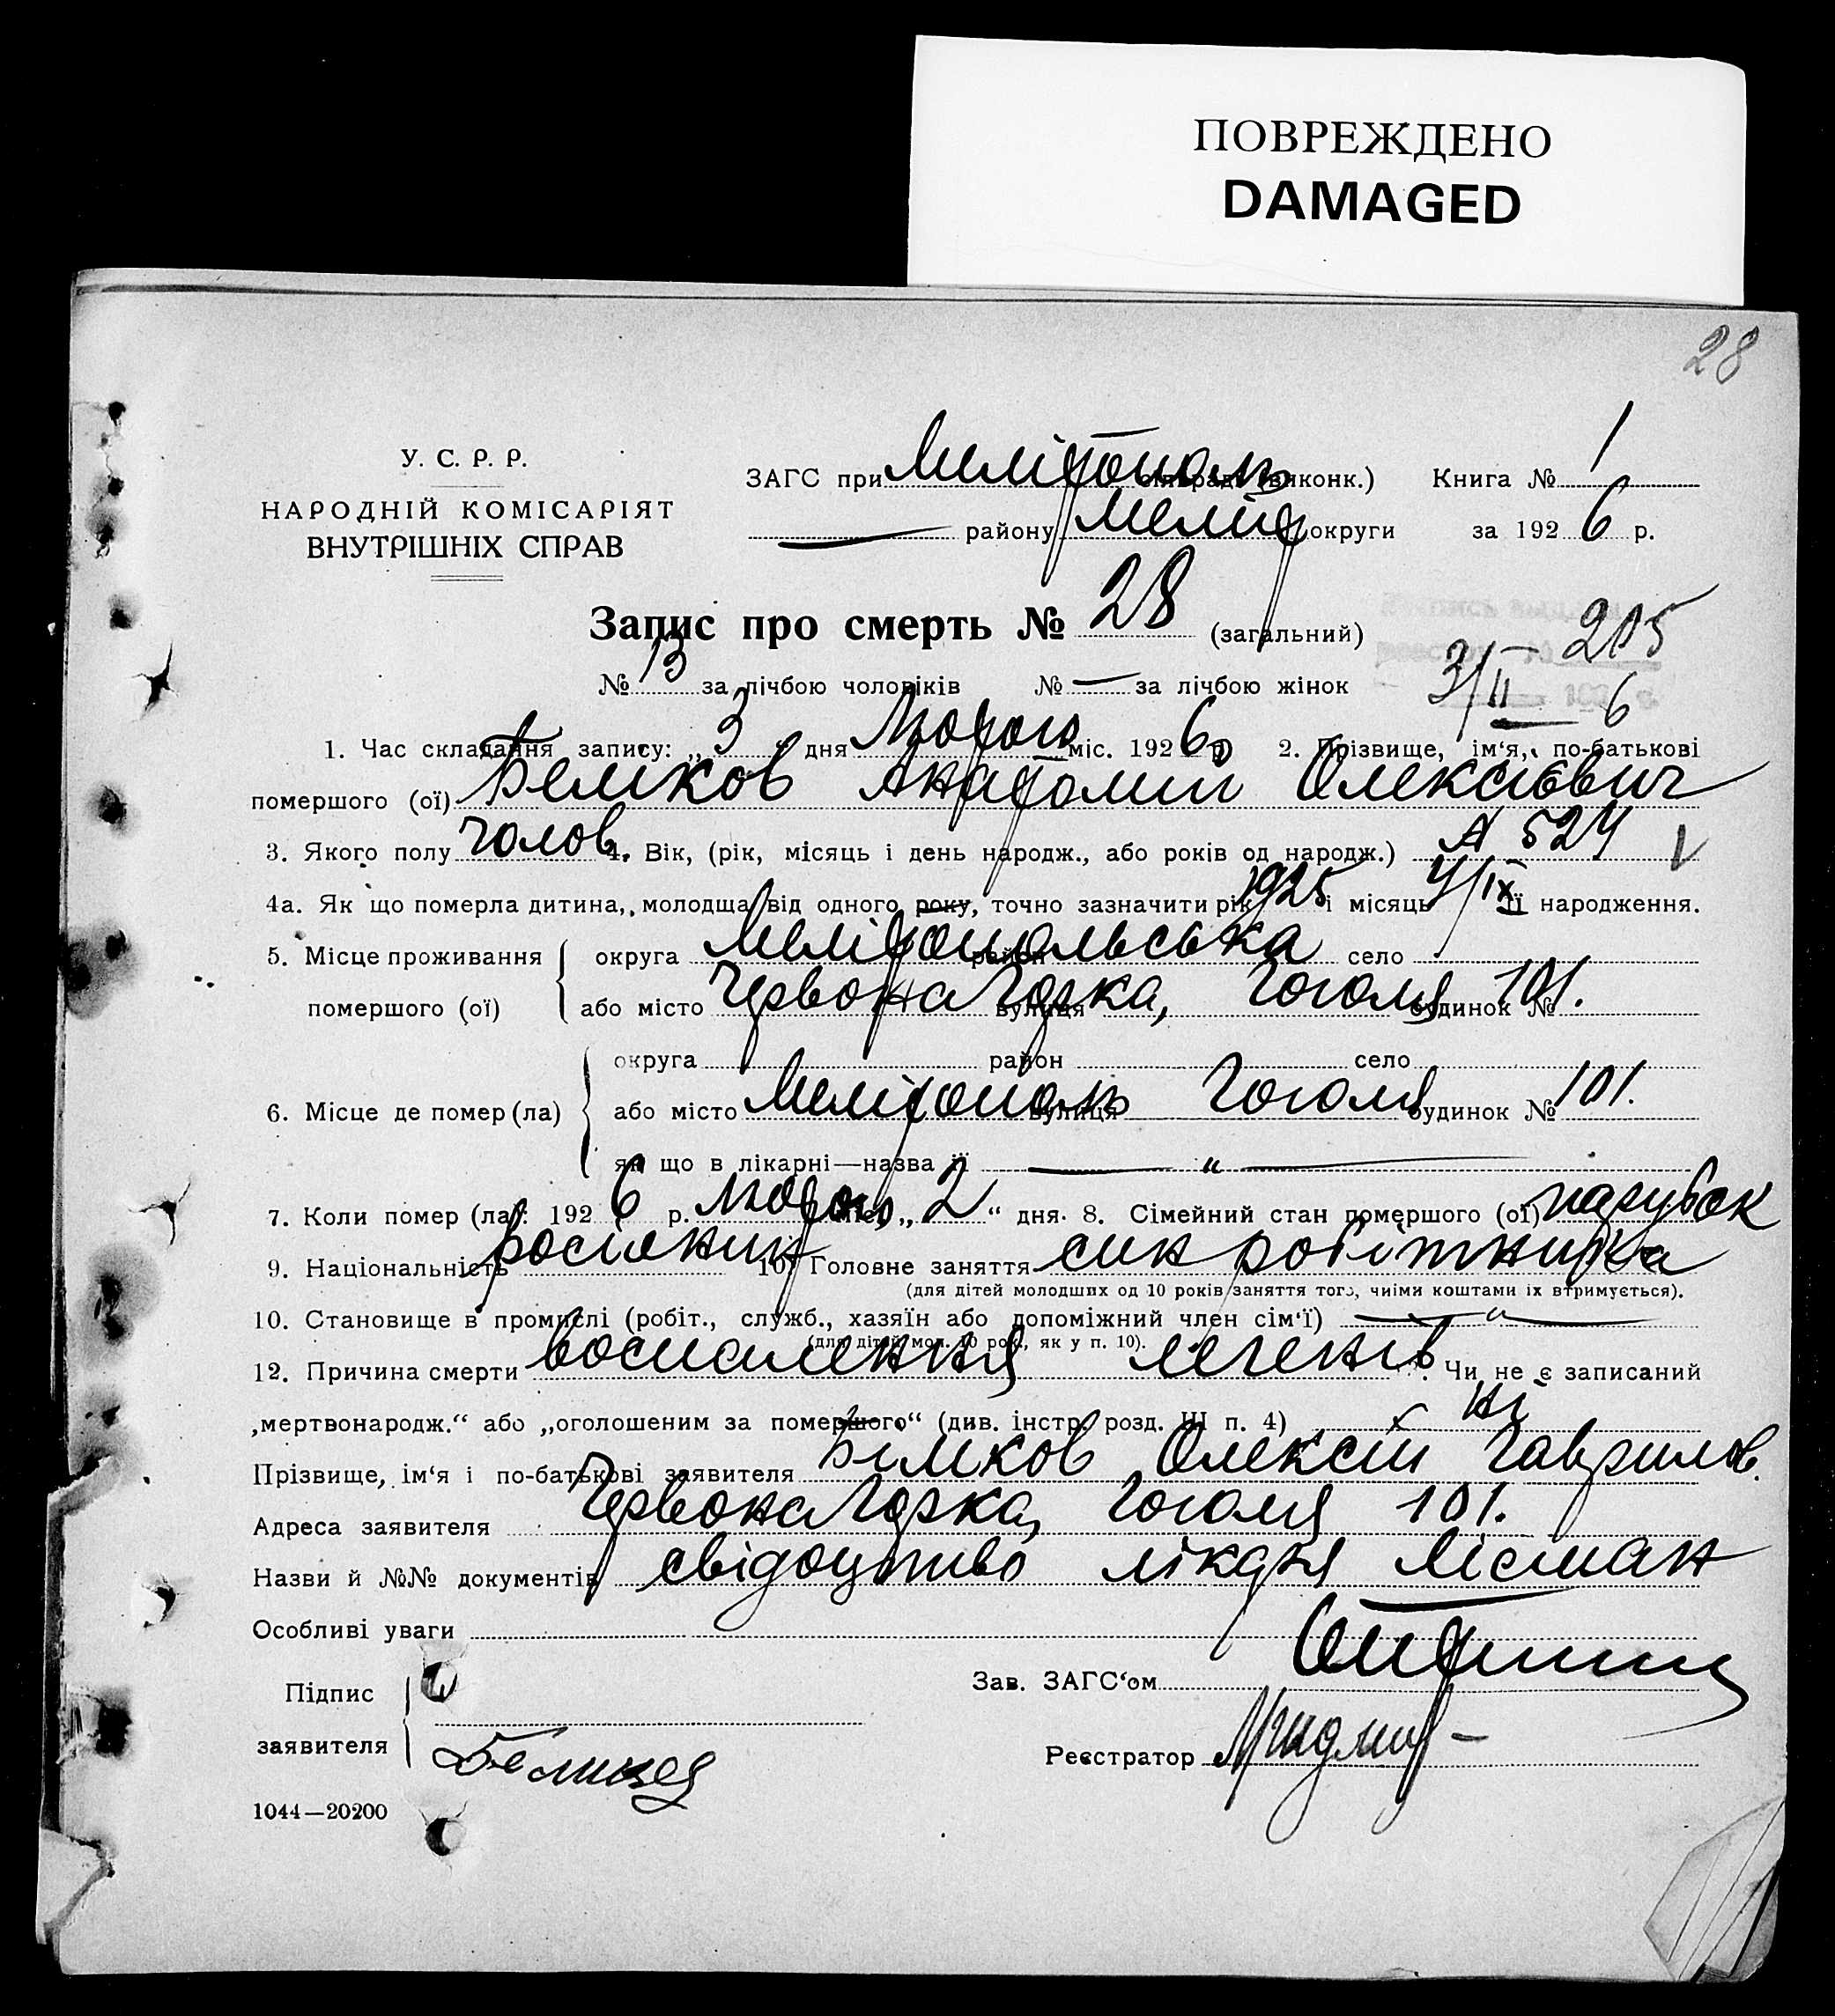 ПОВРЕЖДЕНО
DAMAGED
28
У. С. Р. Р.
НАРОДНІЙ КОМІСАРІЯТ
ВНУТРІШНІХ СПРАВ
ЗАГС при Мелітополь сільраді (виконк.) Книга № 1
— району Меліт округи за 192 6 р.
Запис про смерть № 28 (загальний)
205
№ 13 за лічбою чоловіків № — за лічбою жінок 3/II — 6
1. Час складання запису: „ 3 дня Лютого міс. 192 6 р. 2. Прізвище, ім‘я, по-батькові
помершого (ої) Беліков Анатолий Олексієвич
3. Якого полу чолов. 4. Вік, (рік, місяць і день народж., або років од народж.) А 524 V
4а. Як що померла дитина, молодша від одного року, точно зазначити рік 1925 і місяць 4/IX її народження.
5. Місце проживання помершого (ої) округа Мелітопольська район село
або місто Червона Горка, вулиця Гоголя будинок № 101.
6. Місце де помер (ла) округа район село
або місто Мелітополь вулиця Гоголя будинок № 101.
як що в лікарні—назва її — " —
7. Коли помер (ла): 192 6 р. лютого міс. „ 2 “ дня. 8. Сімейний стан помершого (ої) парубок
9. Національність росіянин 10. Головне заняття син робітника
(для дітей молодших од 10 років заняття того, чиїми коштами їх втримується).
10. Становище в промислі (робіт., служб., хазяїн або допоміжний член сім‘ї) — " —
(для дітей мол. 10 рок., як у п. 10).
12. Причина смерти воспалення легенів. Чи не є записаний
„мертвонародж.“ або „оголошеним за помершого“ (див. інстр. розд. III п. 4) ні
Прізвище, ім‘я і по-батькові заявителя Беліков Олексій Гаврилов.
Адреса заявителя Червона Горка, Гоголя 101.
Назви й №№ документів свідоцтво лікаря Лісман
Особливі уваги
Підпис
заявителя
Зав. ЗАГС‘ом
Реєстратор
1044—20200